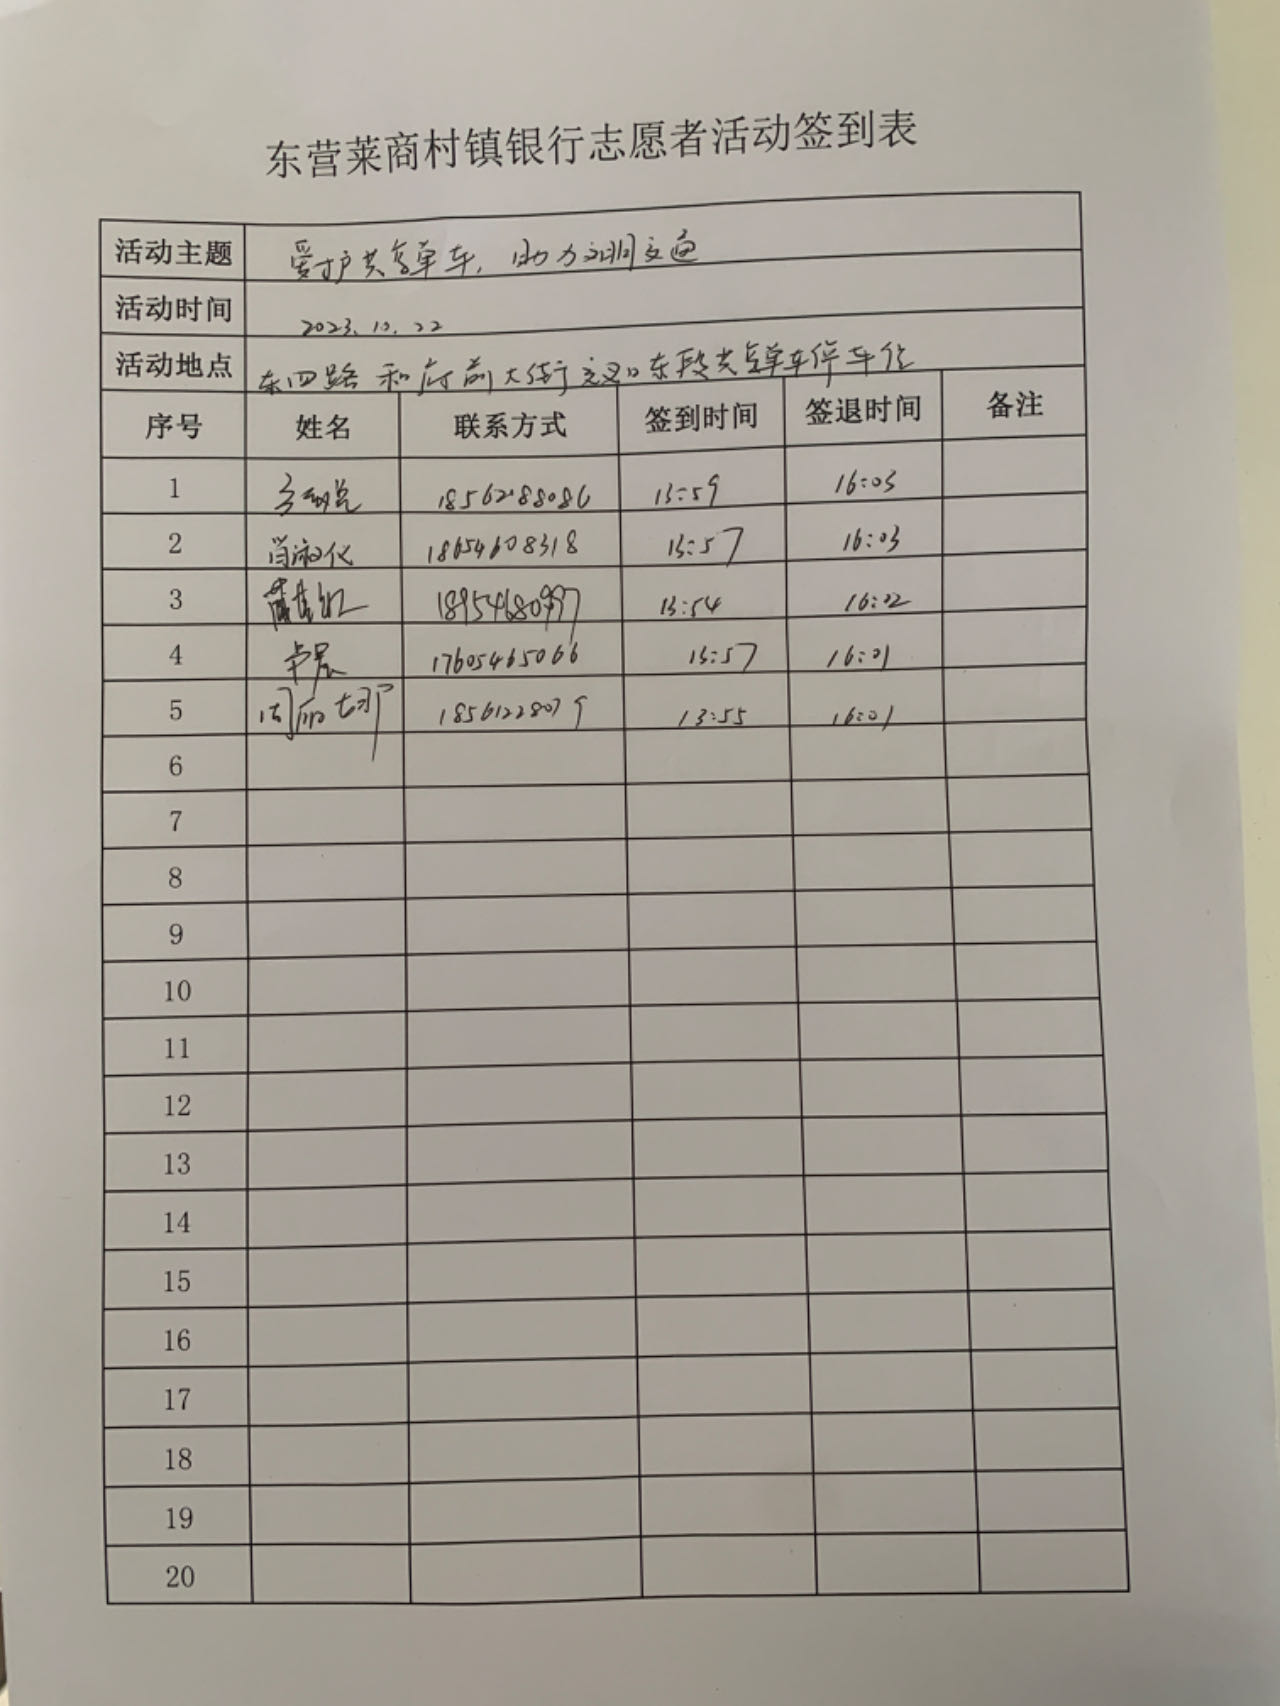 东营莱商村镇银行志愿者活动签到表
活动主题 爱护共享单车，助力文明交通
活动时间 2023.10.22
活动地点 东四路和府前大街交叉口东段共享单车停车位
序号 姓名 联系方式 签到时间 签退时间 备注
1 18562188086 13:59 16:03
2 肖淑仪 18654608318 13:57 16:03
3 18954680997 13:54 16:02
4 17605465066 13:57 16:01
5 周丽娜 18561228079 13:55 16:01
6
7
8
9
10
11
12
13
14
15
16
17
18
19
20